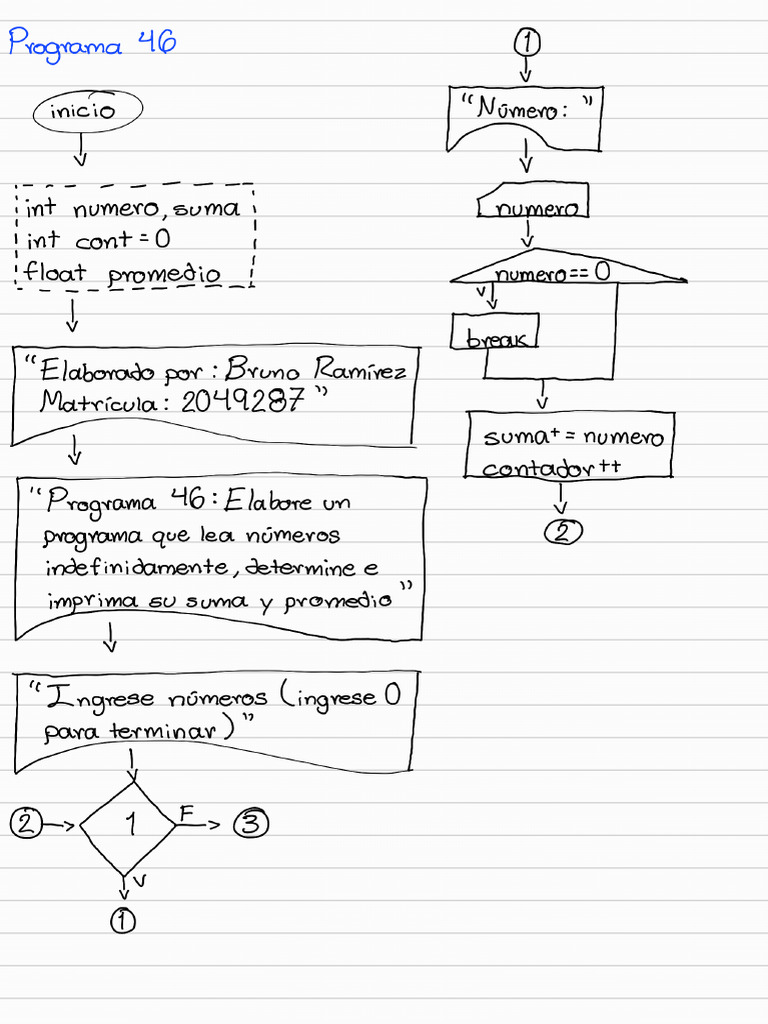 Programa 46
inicio
int numero, suma
int cont = 0
float promedio
"Elaborado por: Bruno Ramírez
Matrícula: 2049287"
"Programa 46: Elabore un
programa que lea números
indefinidamente, determine e
imprima su suma y promedio"
"Ingrese números (ingrese 0
para terminar)"
2
1
F
3
V
1
1
"Número: "
numero
numero == 0
V
break
suma += numero
contador ++
2